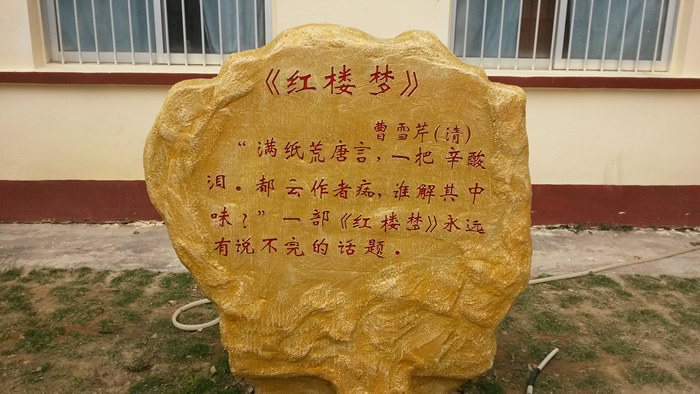 《红楼梦》
曹雪芹(清)
“满纸荒唐言，一把辛酸
泪。都云作者痴，谁解其中
味？”一部《红楼梦》永远
有说不完的话题。